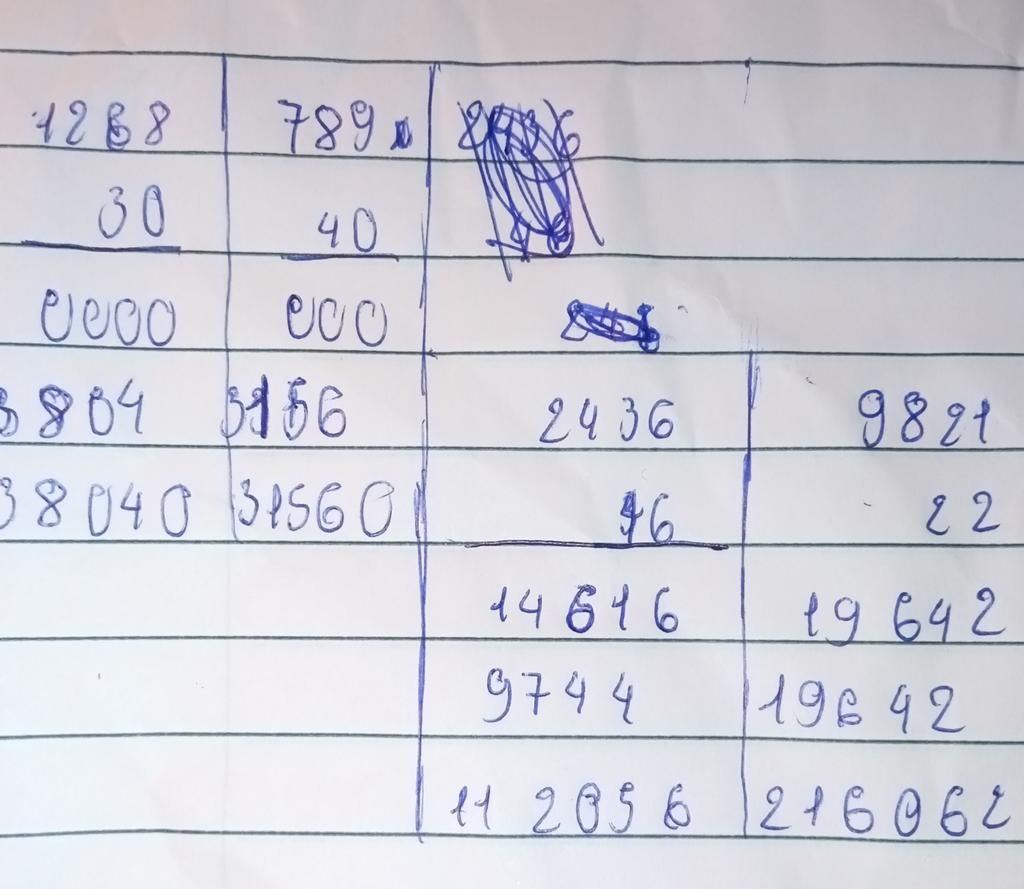 1268
30
0000
3804
38040
789
40
000
3156
31560
2436
46
14616
9744
112056
9821
22
19642
19642
216062